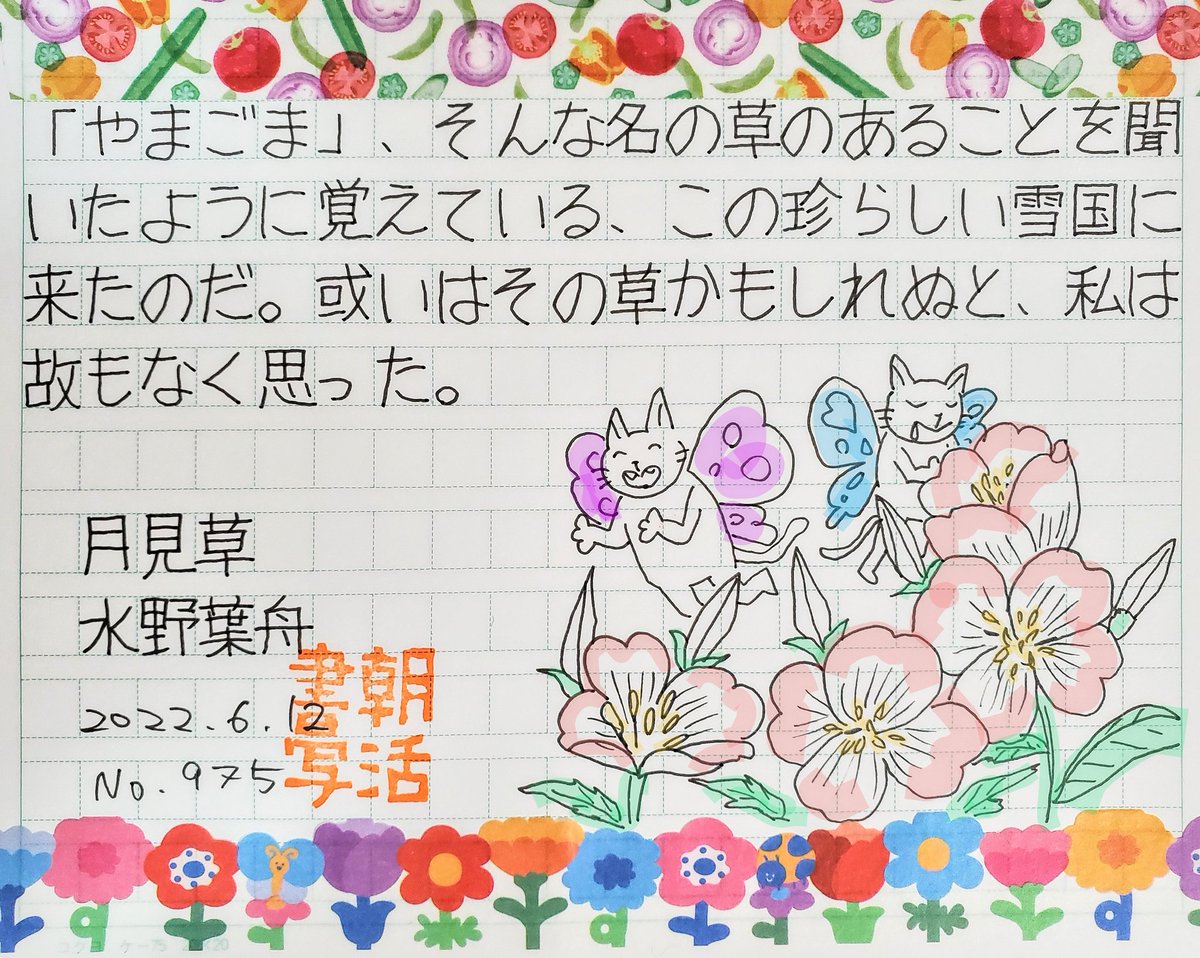 「やまごま」、そんな名の草のあることを聞
いたように覚えている、この珍らしい雪国に
来たのだ。或いはその草かもしれぬと、私は
故もなく思った。
月見草
水野葉舟
2022.6.12
No.975
朝活
書写
コクヨ ケー75 20×20